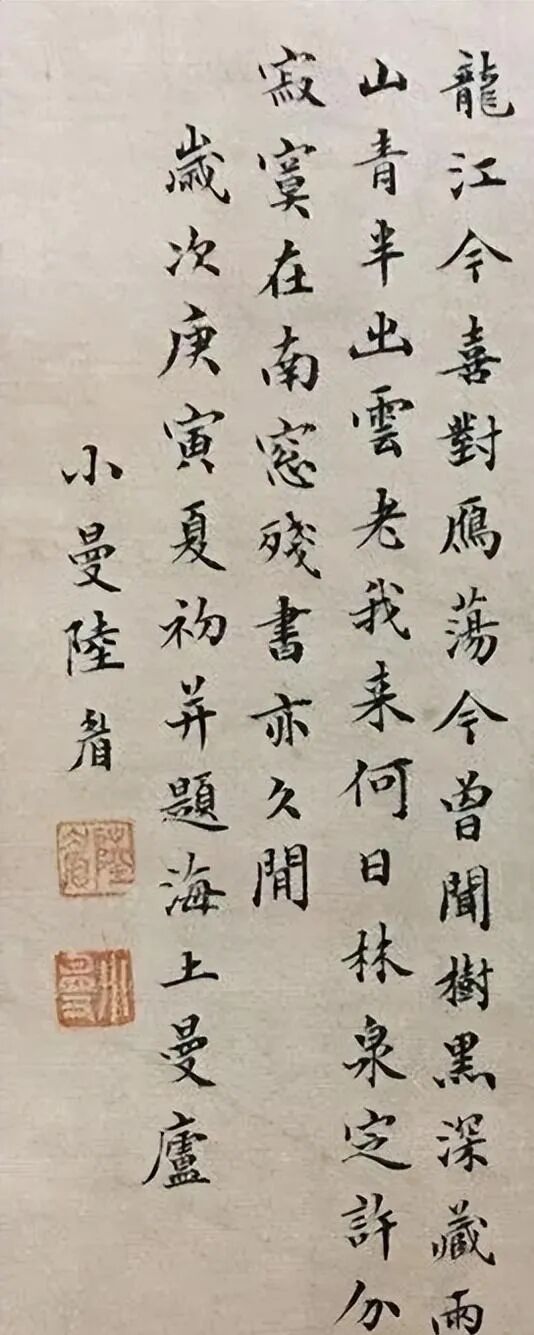 龍江今喜對鴈蕩今曾聞樹黑深藏雨
山青半出雲老我来何日林泉定許分
寂寞在南窓殘書亦久閒
歲次庚寅夏初并題海上曼廬
小曼陸眉
陸眉
小曼